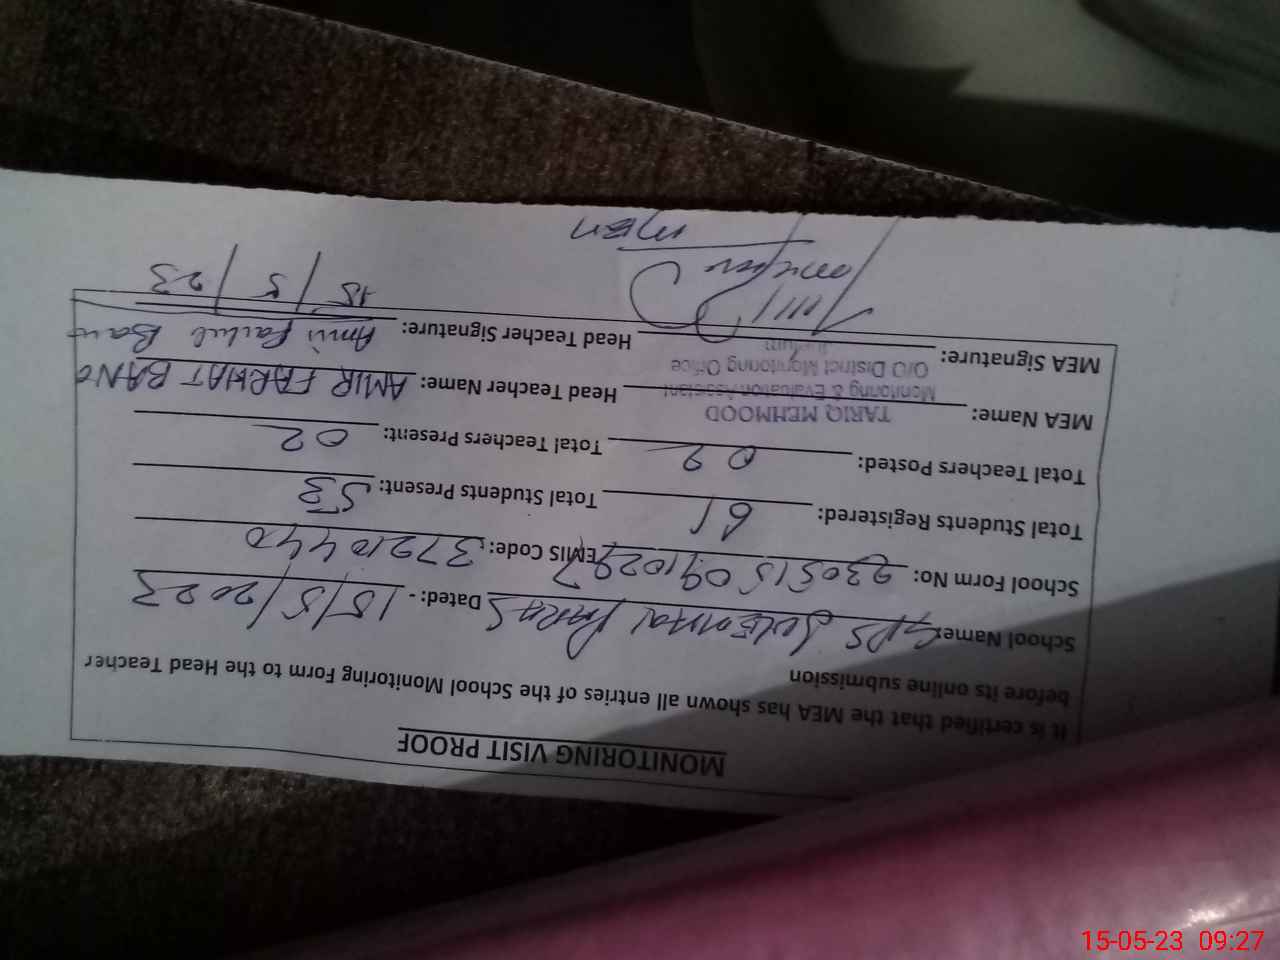 MONITORING VISIT PROOF
It is certified that the MEA has shown all entries of the School Monitoring Form to the Head Teacher
before its online submission
School Name: GPS Dated: - 15/5/2023
School Form No: 230515 0910297 EMIS Code: 37210440
Total Students Registered: 61 Total Students Present: 53
Total Teachers Posted: 02 Total Teachers Present: 02
MEA Name: TARIQ MEHMOOD Head Teacher Name: AMIR FARHAT BANO
Monitoring & Evaluation Assistant
O/O District Monitoring Office
Jhelum
MEA Signature: Head Teacher Signature: Amir Farhat Bano
15/5/23
15-05-23 09:27